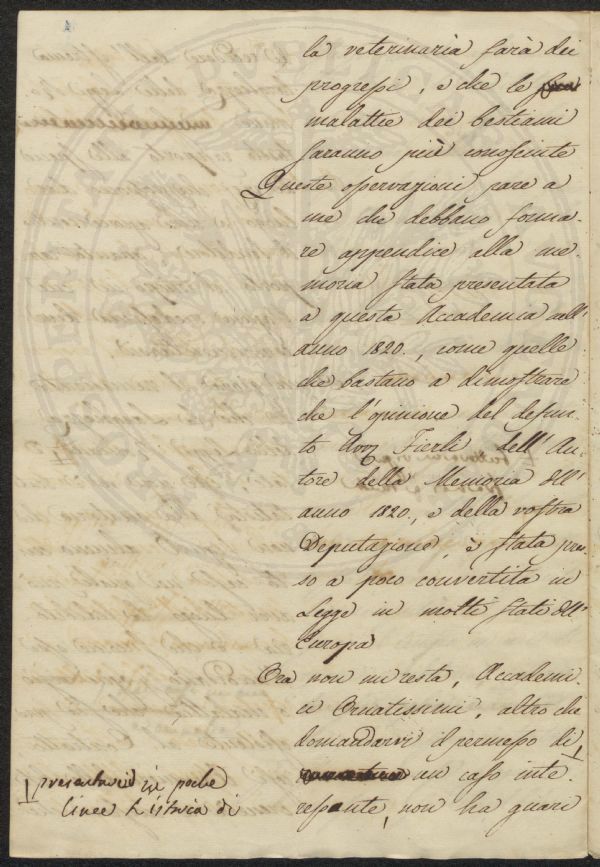 la veterinaria farà dei
progressi, e che le
malattie dei bestiami
saranno più conosciute
Queste osservazioni pare a
me che debbano forma-
re appendice alla me-
moria stata presentata
a questa Accademia nell'
anno 1820., come quelle
che bastano a dimostrare
che l'opinione del defun-
to Avv Fierli dell'Au-
tore della Memoria dell'
anno 1820., e della vostra
Deputazione, è stata pres-
so a poco convertita in
Legge in molti stati dell'
Europa
Ora non mi resta, Accademi-
ci Ornatissimi, altro che
domandarvi il permesso di
un caso inte-
ressante, non ha guari
presentarvi in poche
linee l'istoria di